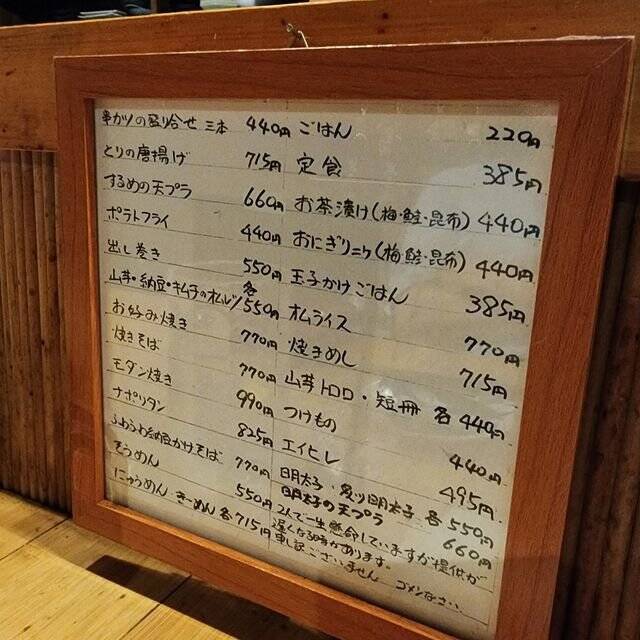 串カツの盛り合せ 三本 440円
とりの唐揚げ 715円
するめの天プラ 660円
ポテトフライ 440円
出し巻き 550円
山芋・納豆・キムチのオムレツ 各550円
お好み焼き 770円
焼きそば 770円
モダン焼き 990円
ナポリタン 825円
ふわふわ納豆かけそば 770円
そうめん 550円
にゅうめん きーめん 各715円
ごはん 220円
定食 385円
お茶漬け(梅・鮭・昆布) 440円
おにぎり二ケ(梅・鮭・昆布) 440円
玉子かけごはん 385円
オムライス 770円
焼きめし 715円
山芋トロロ・短冊 各440円
つけもの 440円
エイヒレ 495円
明太子・炙り明太子 各550円
明太子の天プラ 660円
2人で一生懸命していますが提供が
遅くなる時があります。
申し訳ございません ゴメンなさい